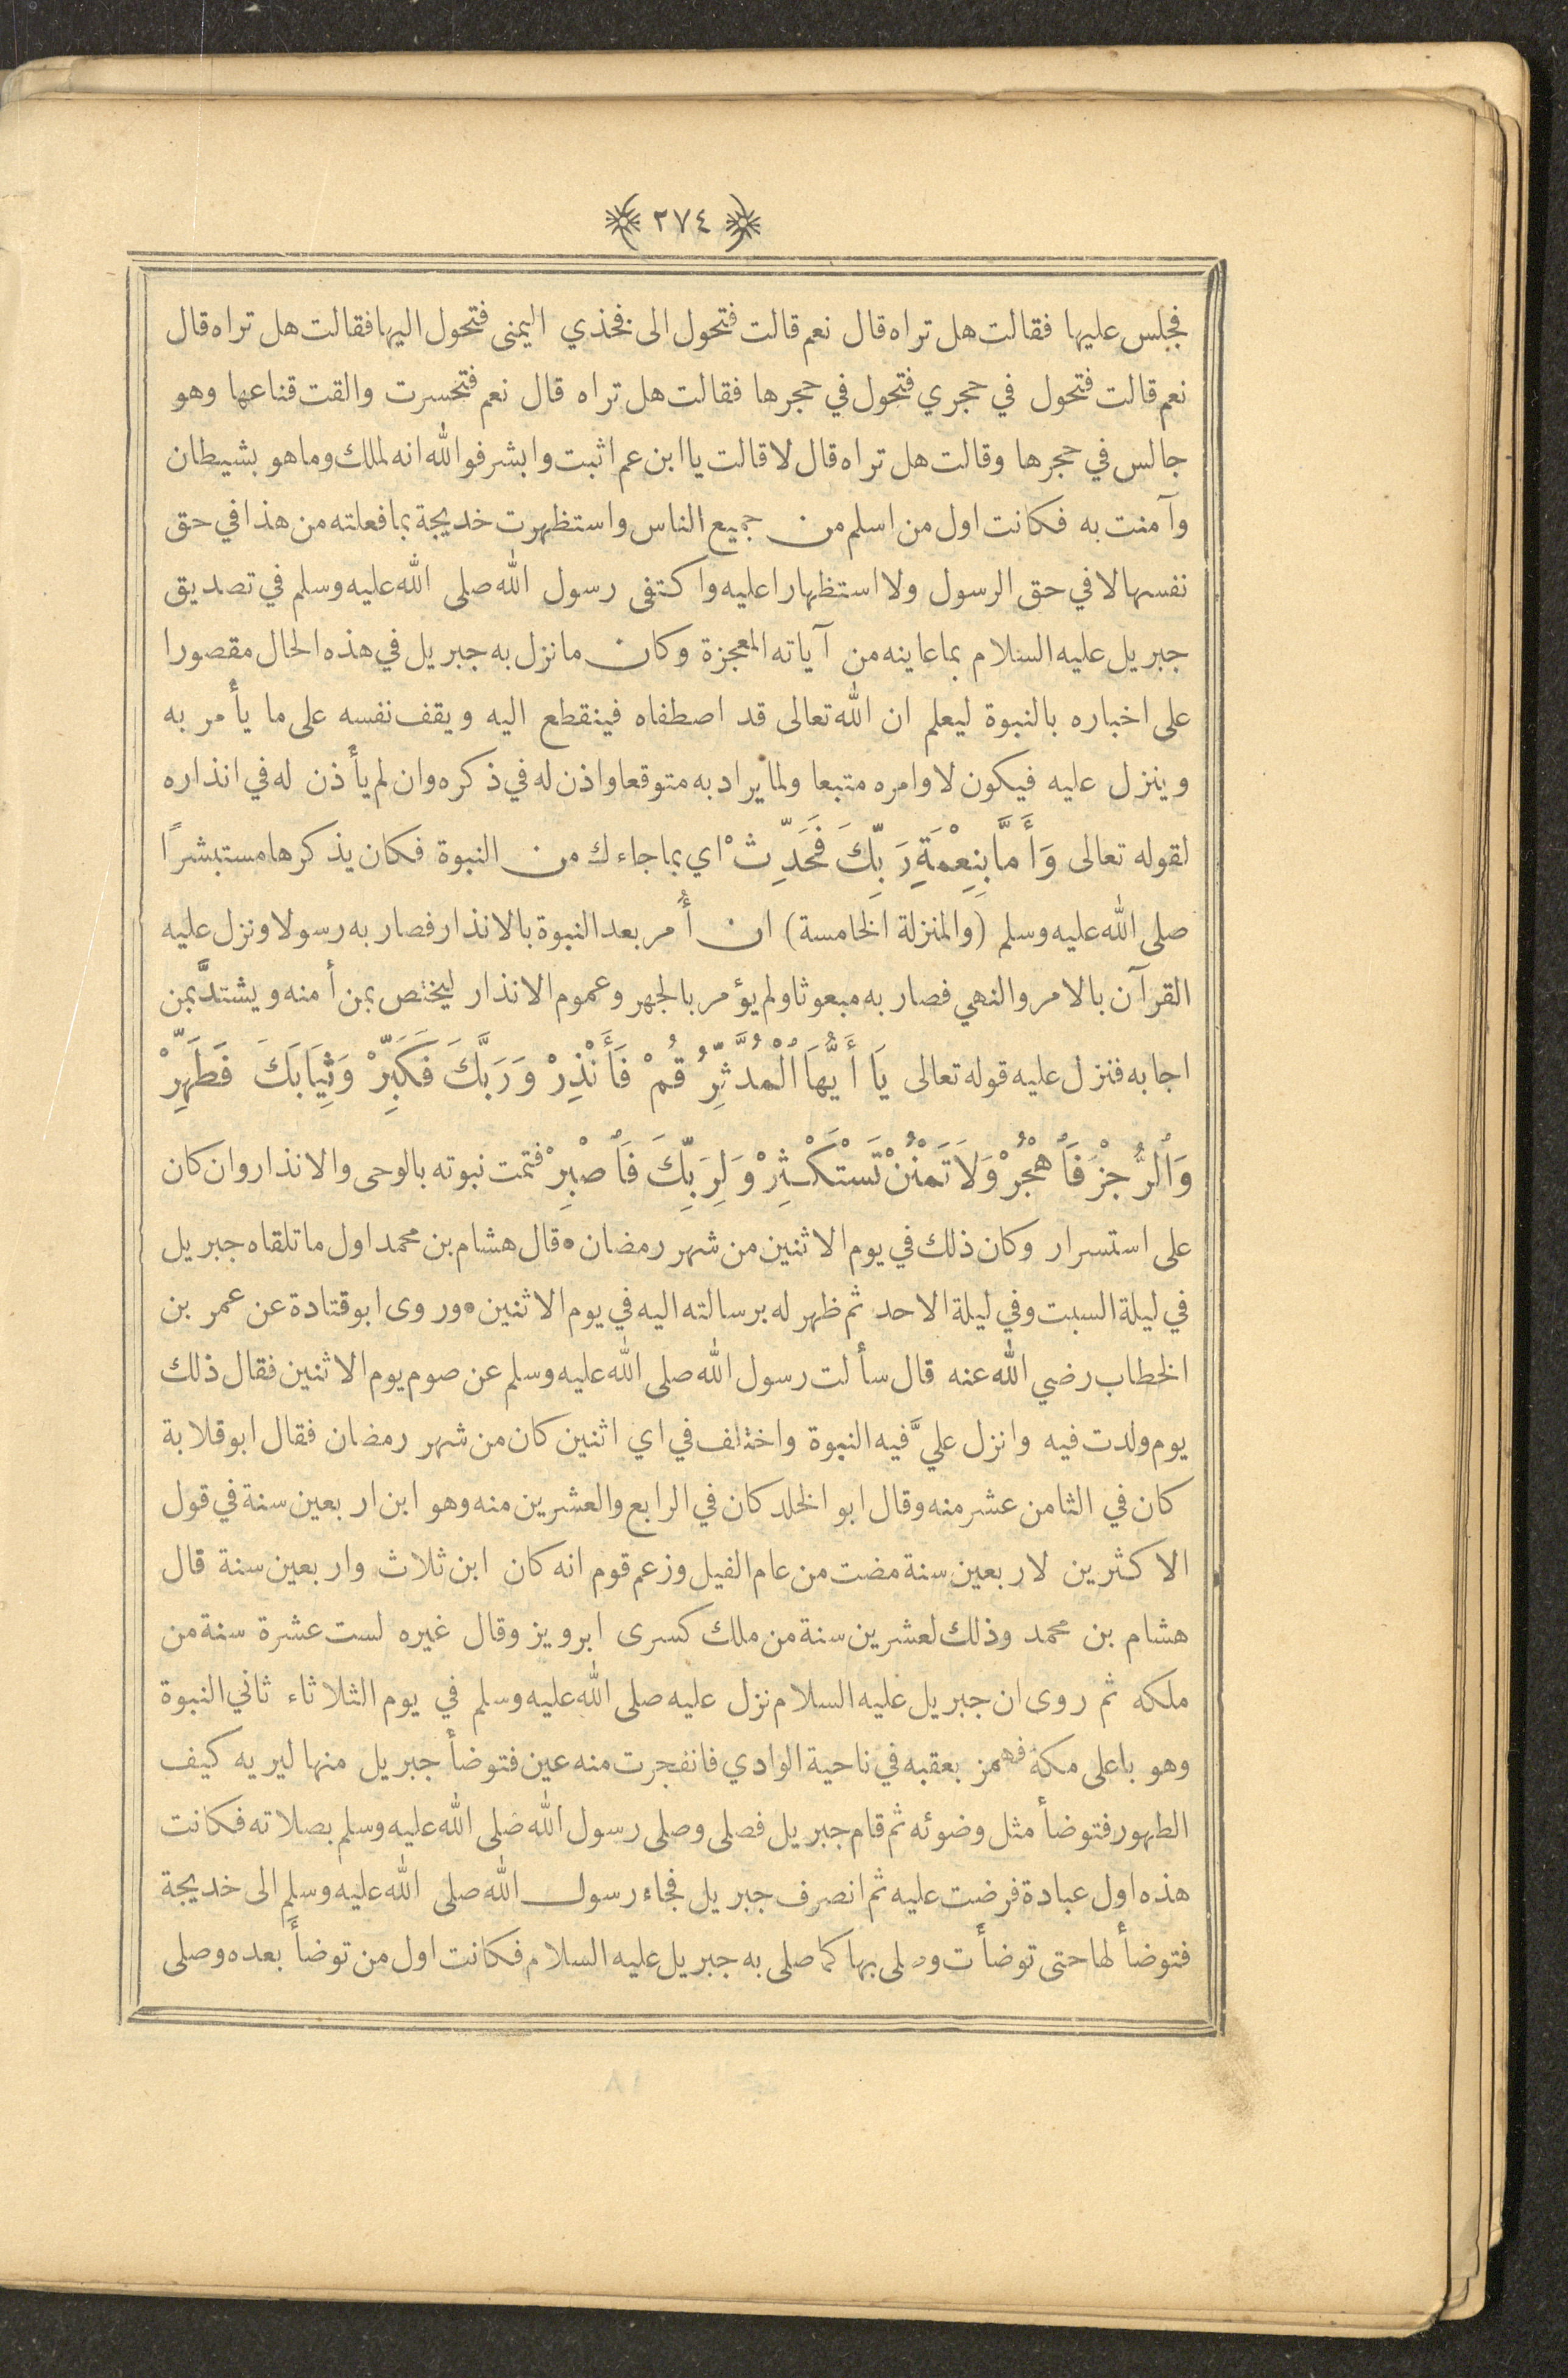 ٢٧٤
فجلس عليها فقالت هل تراه قال نعم قالت فتحول الى فخذي اليمنى فتحول اليها فقالت هل تراه قال
نعم قالت فتحول في حجري فتحول في حجرها فقالت هل تراه قال نعم فتحسرت والقت قناعها وهو
جالس في حجرها وقالت هل تراه قال لا قالت يا ابن عم اثبت وابشر فوالله انه لملك وما هو بشيطان
وآمنت به فكانت اول من اسلم من جميع الناس واستظهرت خديجة بما فعلته من هذا في حق
نفسها لا في حق الرسول ولا استظهارا عليه واكتفى رسول الله صلى الله عليه وسلم في تصديق
جبريل عليه السلام بما عاينه من آياته المعجزة وكان ما نزل به جبريل في هذه الحال مقصورا
على اخباره بالنبوة ليعلم ان الله تعالى قد اصطفاه فينقطع اليه ويقف نفسه على ما يأمر به
وينزل عليه فيكون لاوامره متبعا ولما يراد به متوقعا واذن له في ذكره وان لم يأذن له في انذاره
لقوله تعالى وَأَمَّا بِنِعْمَةِ رَبِّكَ فَحَدِّثْ اي بما جاءك من النبوة فكان يذكرها مستبشرًا
صلى الله عليه وسلم (والمنزلة الخامسة) ان أُمر بعد النبوة بالانذار فصار به رسولا ونزل عليه
القرآن بالامر والنهي فصار به مبعوثا ولم يؤمر بالجهر وعموم الانذار ليختص بمن أمنه ويشتدَّ بمن
اجابه فنزل عليه قوله تعالى يَا أَيُّهَا ٱلْمُدَّثِّرُ قُمْ فَأَنْذِرْ وَرَبَّكَ فَكَبِّرْ وَثِيَابَكَ فَطَهِّرْ
وَٱلرُّجْزَ فَٱهْجُرْ وَلاَ تَمْنُنْ تَسْتَكْثِرْ وَلِرَبِّكَ فَٱصْبِرْ فتمت نبوته بالوحى والانذار وان كان
على استسرار وكان ذلك في يوم الاثنين من شهر رمضان • قال هشام بن محمد اول ما تلقاه جبريل
في ليلة السبت وفي ليلة الاحد ثم ظهر له برسالته اليه في يوم الاثنين • وروى ابو قتادة عن عمر بن
الخطاب رضي الله عنه قال سألت رسول الله صلى الله عليه وسلم عن صوم يوم الاثنين فقال ذلك
يوم ولدت فيه وانزل عليَّ فيه النبوة واختلف في اي اثنين كان من شهر رمضان فقال ابو قلابة
كان في الثامن عشر منه وقال ابو الخلد كان في الرابع والعشرين منه وهو ابن اربعين سنة في قول
الاكثرين لاربعين سنة مضت من عام الفيل وزعم قوم انه كان ابن ثلاث واربعين سنة قال
هشام بن محمد وذلك لعشرين سنة من ملك كسرى ابرويز وقال غيره لست عشرة سنة من
ملكه ثم روى ان جبريل عليه السلام نزل عليه صلى الله عليه وسلم في يوم الثلاثاء ثاني النبوة
وهو باعلى مكة فهمز بعقبه في ناحية الوادي فانفجرت منه عين فتوضأ جبريل منها ليريه كيف
الطهور فتوضأ مثل وضوئه ثم قام جبريل فصلى وصلى رسول الله صلى الله عليه وسلم بصلاته فكانت
هذه اول عبادة فرضت عليه ثم انصرف جبريل فجاء رسول الله صلى الله عليه وسلم الى خديجة
فتوضأ لها حتى توضأت وصلى بها كما صلى به جبريل عليه السلام فكانت اول من توضأ بعده وصلى